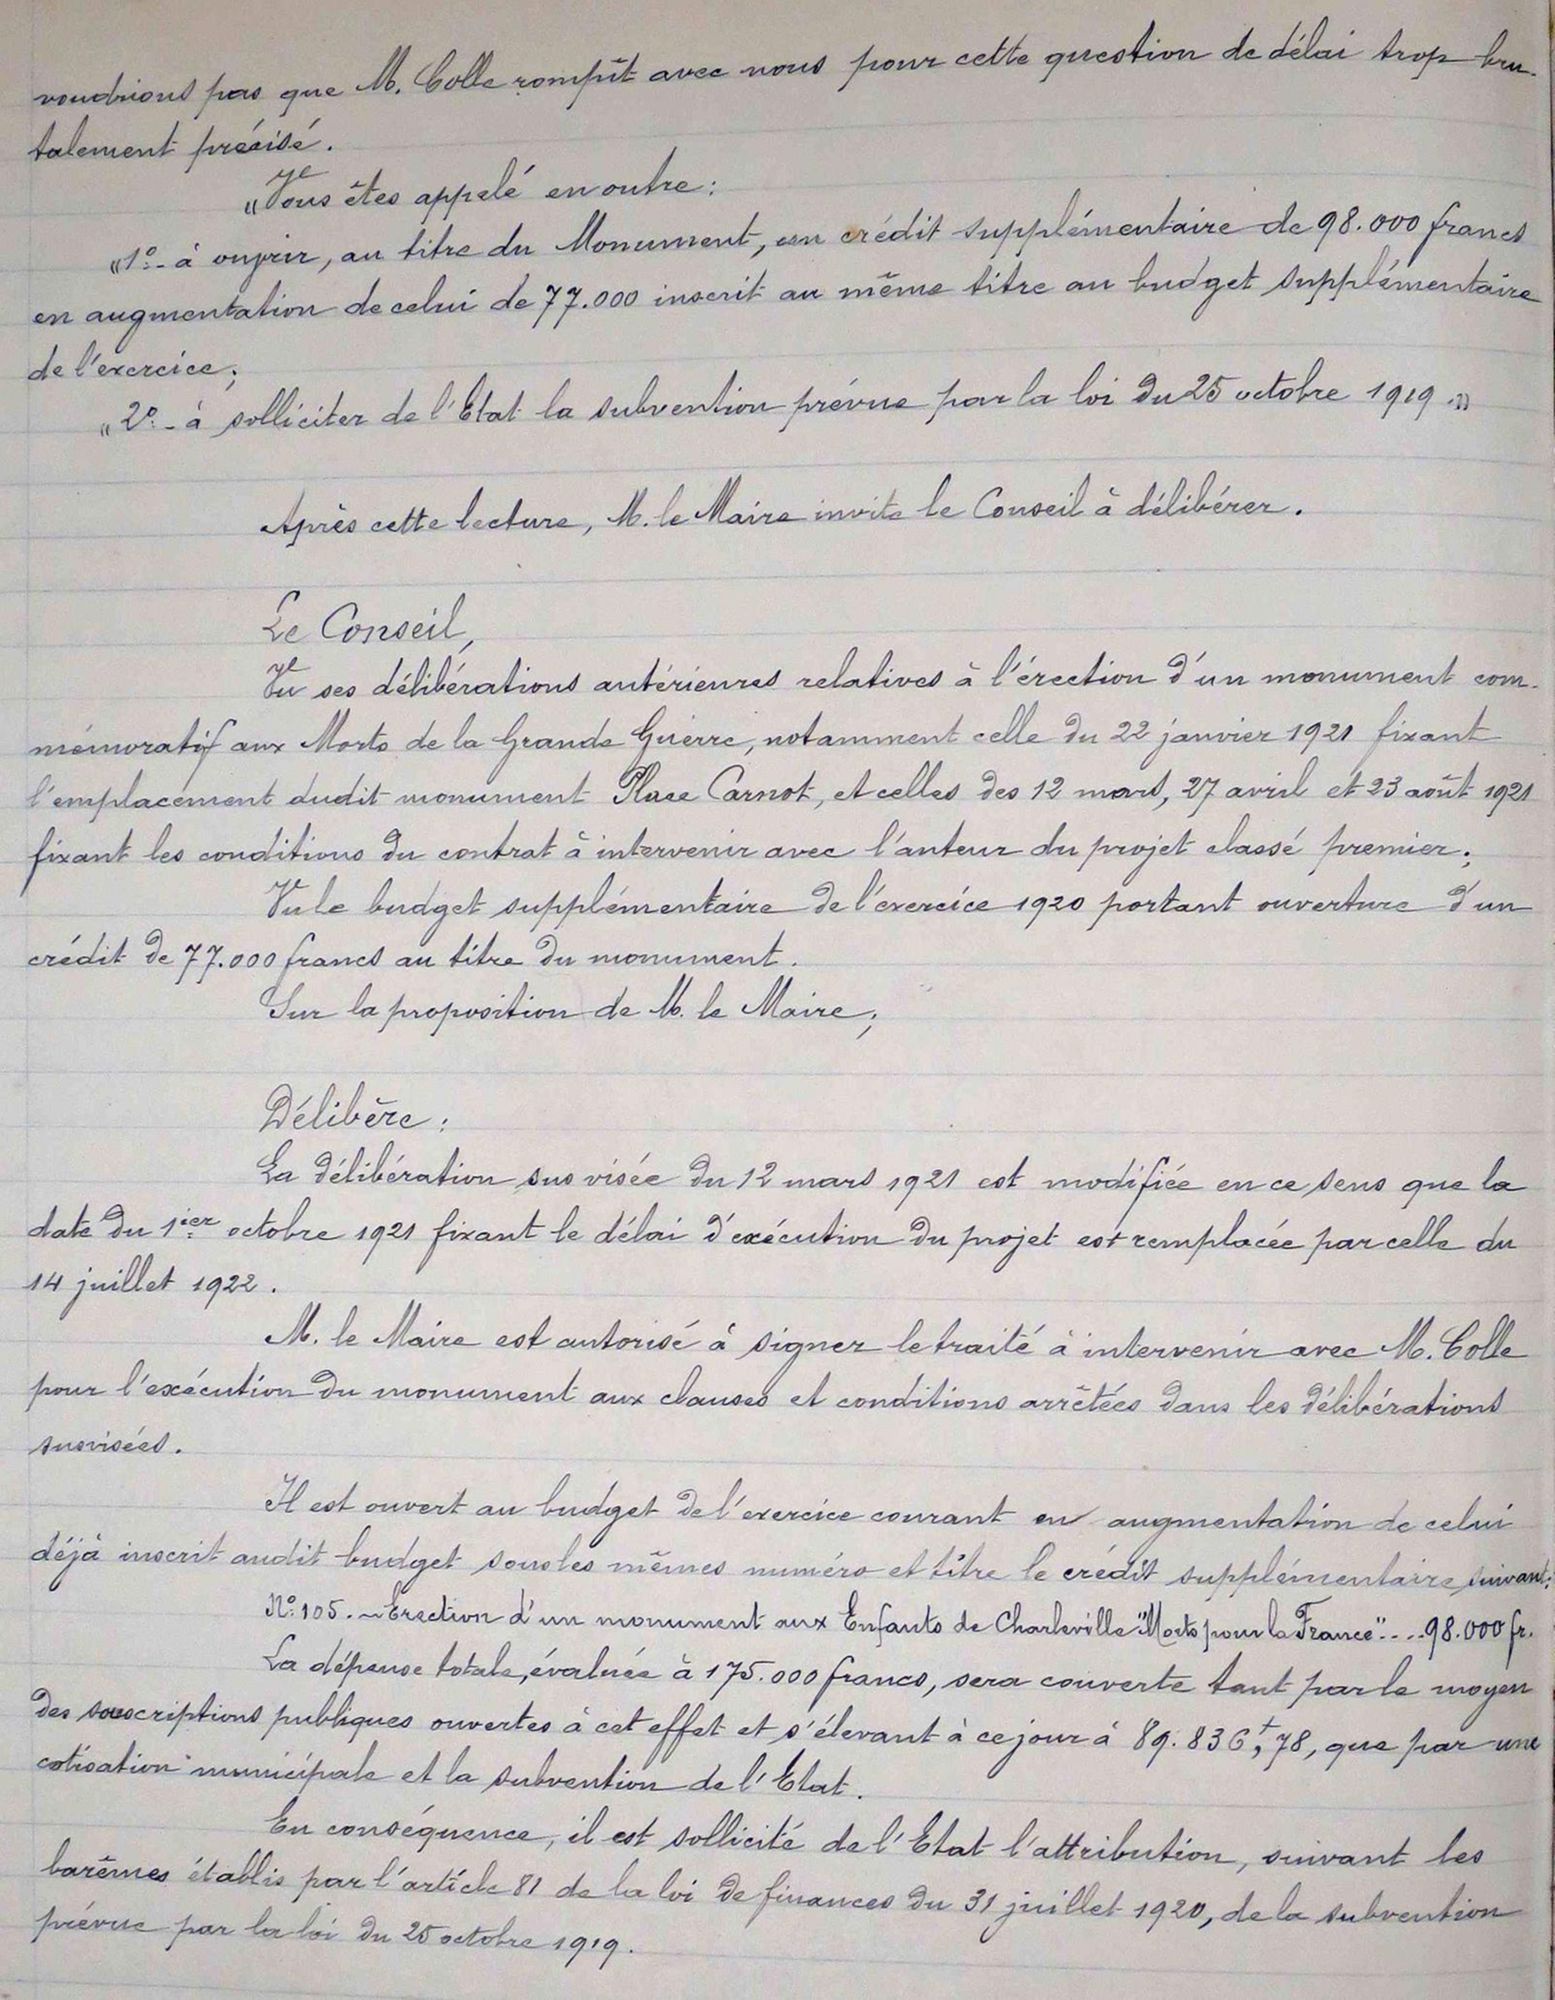 voudrions pas que M. Colle rompît avec nous pour cette question de délai trop bru-
talement précisé.
"Vous êtes appelé en outre :
"1º - à ouvrir, au titre du Monument, un crédit supplémentaire de 98.000 francs
en augmentation de celui de 77.000 inscrit au même titre au budget supplémentaire
de l'exercice ;
"2º - à solliciter de l'Etat la subvention prévue par la loi du 25 octobre 1919."
Après cette lecture, M. le Maire invite le Conseil à délibérer.
Le Conseil,
Vu ses délibérations antérieures relatives à l'érection d'un monument com-
mémoratif aux Morts de la Grande Guerre, notamment celle du 22 janvier 1921 fixant
l'emplacement dudit monument Place Carnot, et celles des 12 mars, 27 avril et 23 août 1921
fixant les conditions du contrat à intervenir avec l'auteur du projet classé premier ;
Vu le budget supplémentaire de l'exercice 1920 portant ouverture d'un
crédit de 77.000 francs au titre du monument.
Sur la proposition de M. le Maire ;
Délibère :
La délibération sus visée du 12 mars 1921 est modifiée en ce sens que la
date du 1ier octobre 1921 fixant le délai d'exécution du projet est remplacée par celle du
14 juillet 1922.
M. le Maire est autorisé à signer le traité à intervenir avec M. Colle
pour l'exécution du monument aux clauses et conditions arrêtées dans les délibérations
susvisées.
Il est ouvert au budget de l'exercice courant en augmentation de celui
déjà inscrit audit budget sous les mêmes numéro et titre le crédit supplémentaire suivant :
Nº 105. - Erection d'un monument aux Enfants de Charleville "Morts pour la France" .... 98.000 fr.
La dépense totale, évaluée à 175.000 francs, sera couverte tant par le moyen
des souscriptions publiques ouvertes à cet effet et s'élevant à ce jour à 89.836f,78, que par une
cotisation municipale et la subvention de l'Etat.
En conséquence, il est sollicité de l'Etat l'attribution, suivant les
barêmes établis par l'article 81 de la loi de finances du 31 juillet 1920, de la subvention
prévue par la loi du 25 octobre 1919.